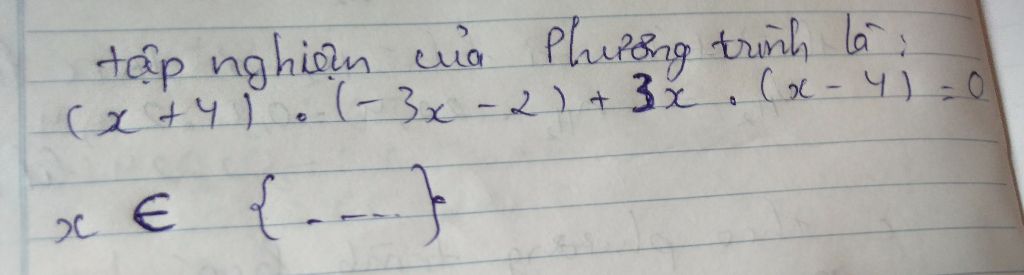 tập nghiệm của Phương trình là:
(x + 4) . (-3x - 2) + 3x . (x - 4) = 0
x ∈ {. ---}